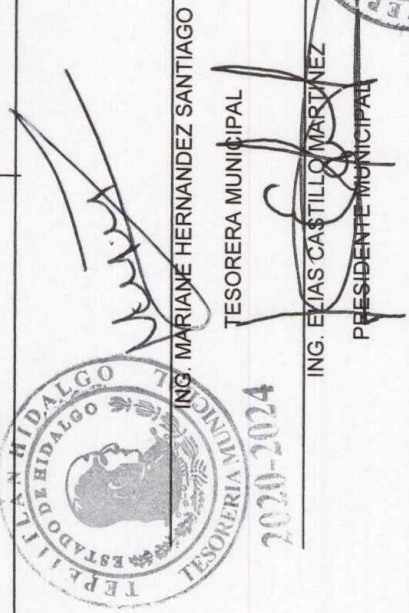 ING. MARIANE HERNANDEZ SANTIAGO
TESORERA MUNICIPAL
ING. ELIAS CASTILLO MARTINEZ
PRESIDENTE MUNICIPAL
HIDALGO
ESTADO DE HIDALGO
TESORERIA
2020-2024